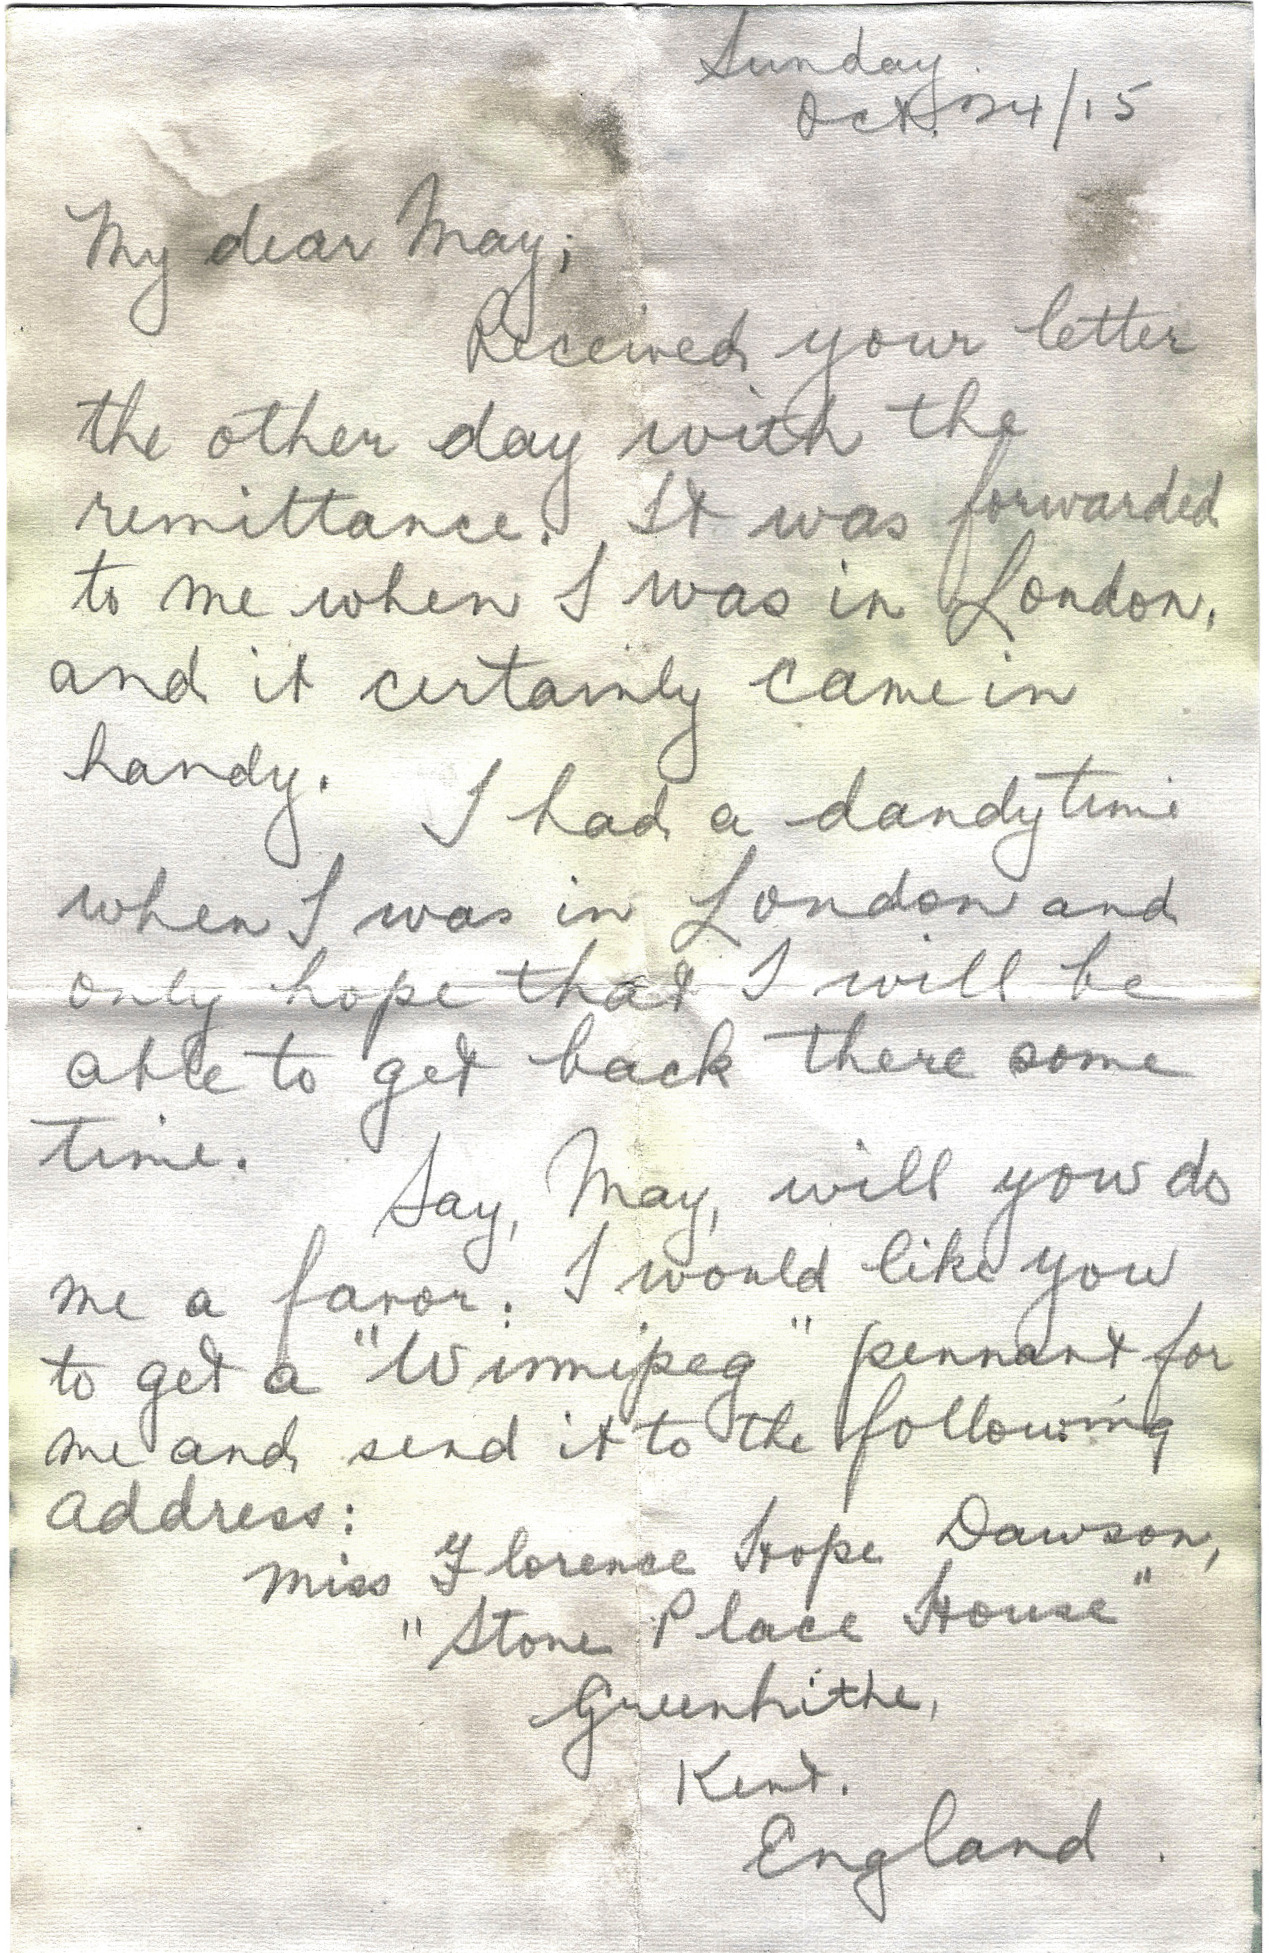 Sunday.
Oct. 24/15
My dear May;
Received your letter
the other day with the
remittance. It was forwarded
to me when I was in London,
and it certainly came in
handy. I had a dandy time
when I was in London and
only hope that I will be
able to get back there some
time.
Say, May, will you do
me a favor. I would like you
to get a "Winnipeg" pennant for
me and send it to the following
address:
Miss Florence Hope Dawson,
"Stone Place House"
Greenhithe,
Kent.
England.